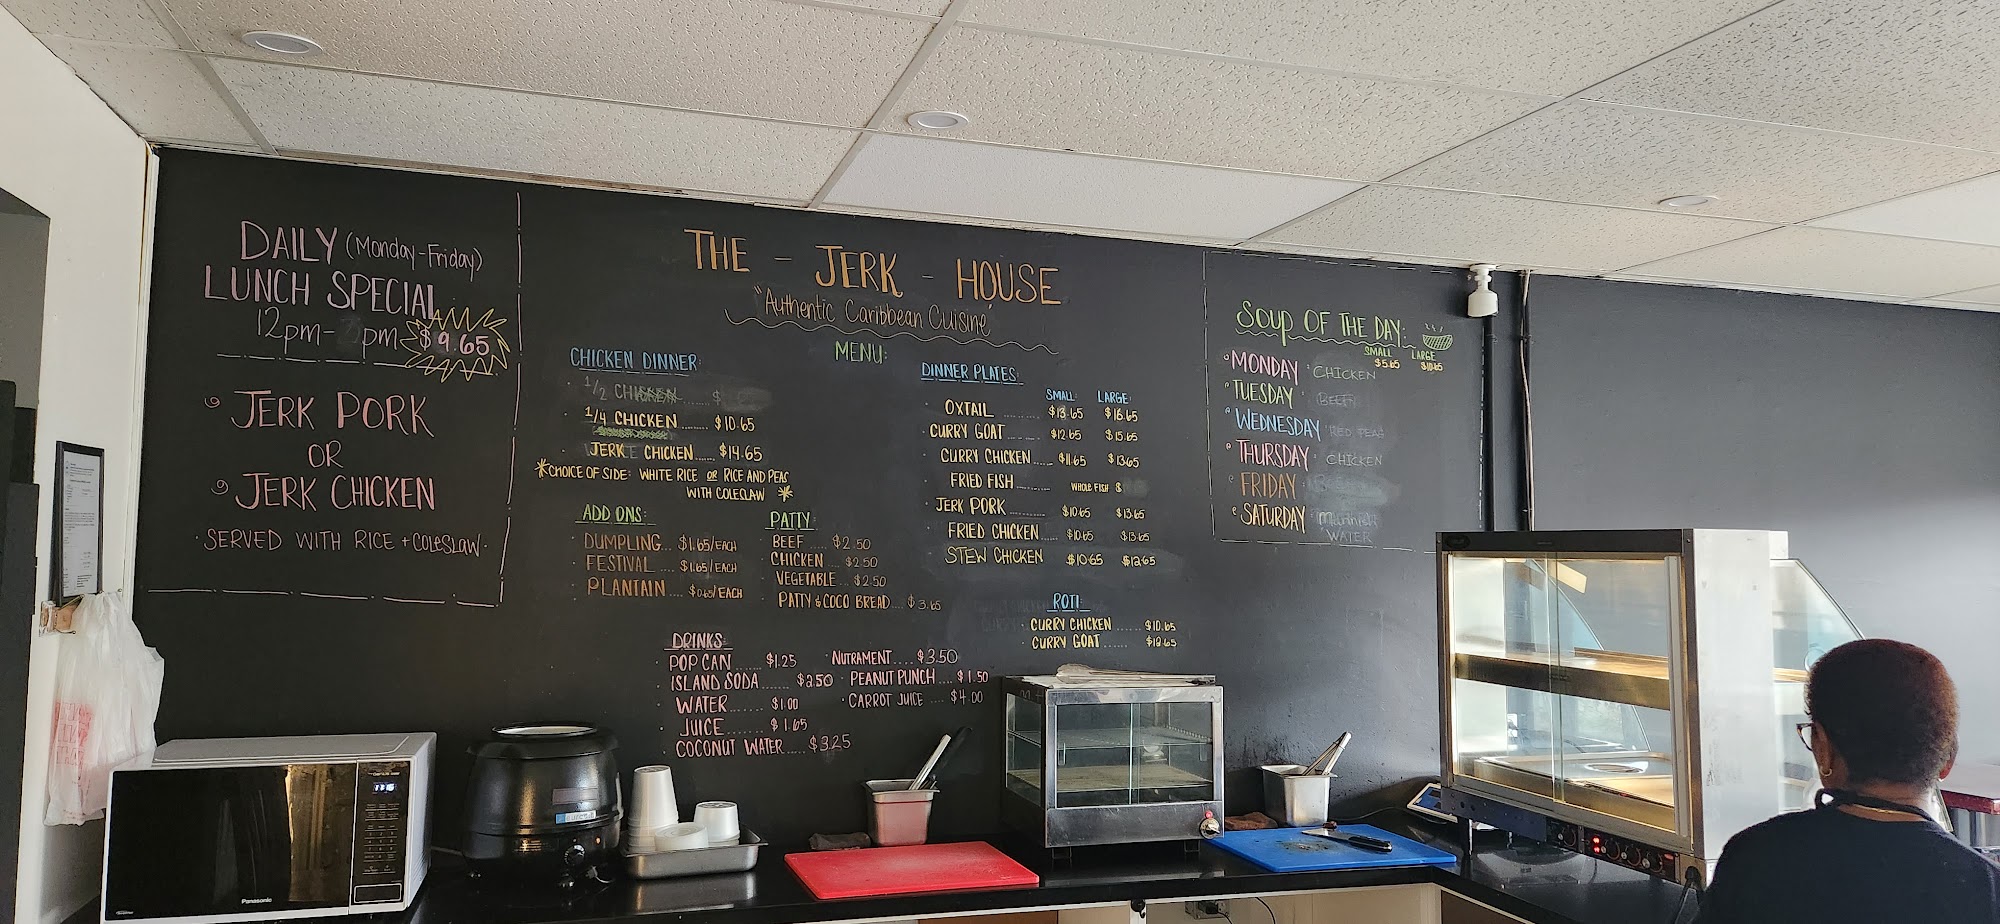 DAILY (Monday-Friday)
LUNCH SPECIAL
12pm- pm $9.65
JERK PORK
OR
JERK CHICKEN
SERVED WITH RICE + COLESLAW
THE - JERK - HOUSE
"Authentic Caribbean Cuisine"
MENU:
CHICKEN DINNER:
1/2 CHICKEN ...... $
1/4 CHICKEN ...... $10.65
JERK CHICKEN ..... $14.65
*CHOICE OF SIDE: WHITE RICE OR RICE AND PEAS
WITH COLESLAW *
ADD ONS:
DUMPLING... $1.65/EACH
FESTIVAL .... $1.65/EACH
PLANTAIN ... $0.65/EACH
PATTY
BEEF ..... $2.50
CHICKEN ... $2.50
VEGETABLE ... $2.50
PATTY & COCO BREAD ... $3.65
DINNER PLATES:
SMALL LARGE
OXTAIL .......... $13.65 $16.65
CURRY GOAT ........ $12.65 $15.65
CURRY CHICKEN ..... $11.65 $13.65
FRIED FISH ........ WHOLE FISH $
JERK PORK ......... $10.65 $13.65
FRIED CHICKEN ..... $10.65 $13.65
STEW CHICKEN $10.65 $12.65
ROTI
CURRY CHICKEN ...... $10.65
CURRY GOAT ......
DRINKS:
POP CAN ...... $1.25
ISLAND SODA ...... $2.50
WATER ....... $1.00
JUICE ....... $1.65
COCONUT WATER ..... $3.25
NUTRAMENT .... $3.50
PEANUT PUNCH .... $1.50
CARROT JUICE .... $4.00
Soup OF THE DAY:
SMALL LARGE
$5.65 $10.65
MONDAY CHICKEN
TUESDAY BEEF
WEDNESDAY RED PEAS
THURSDAY CHICKEN
FRIDAY
SATURDAY
WATER
Panasonic